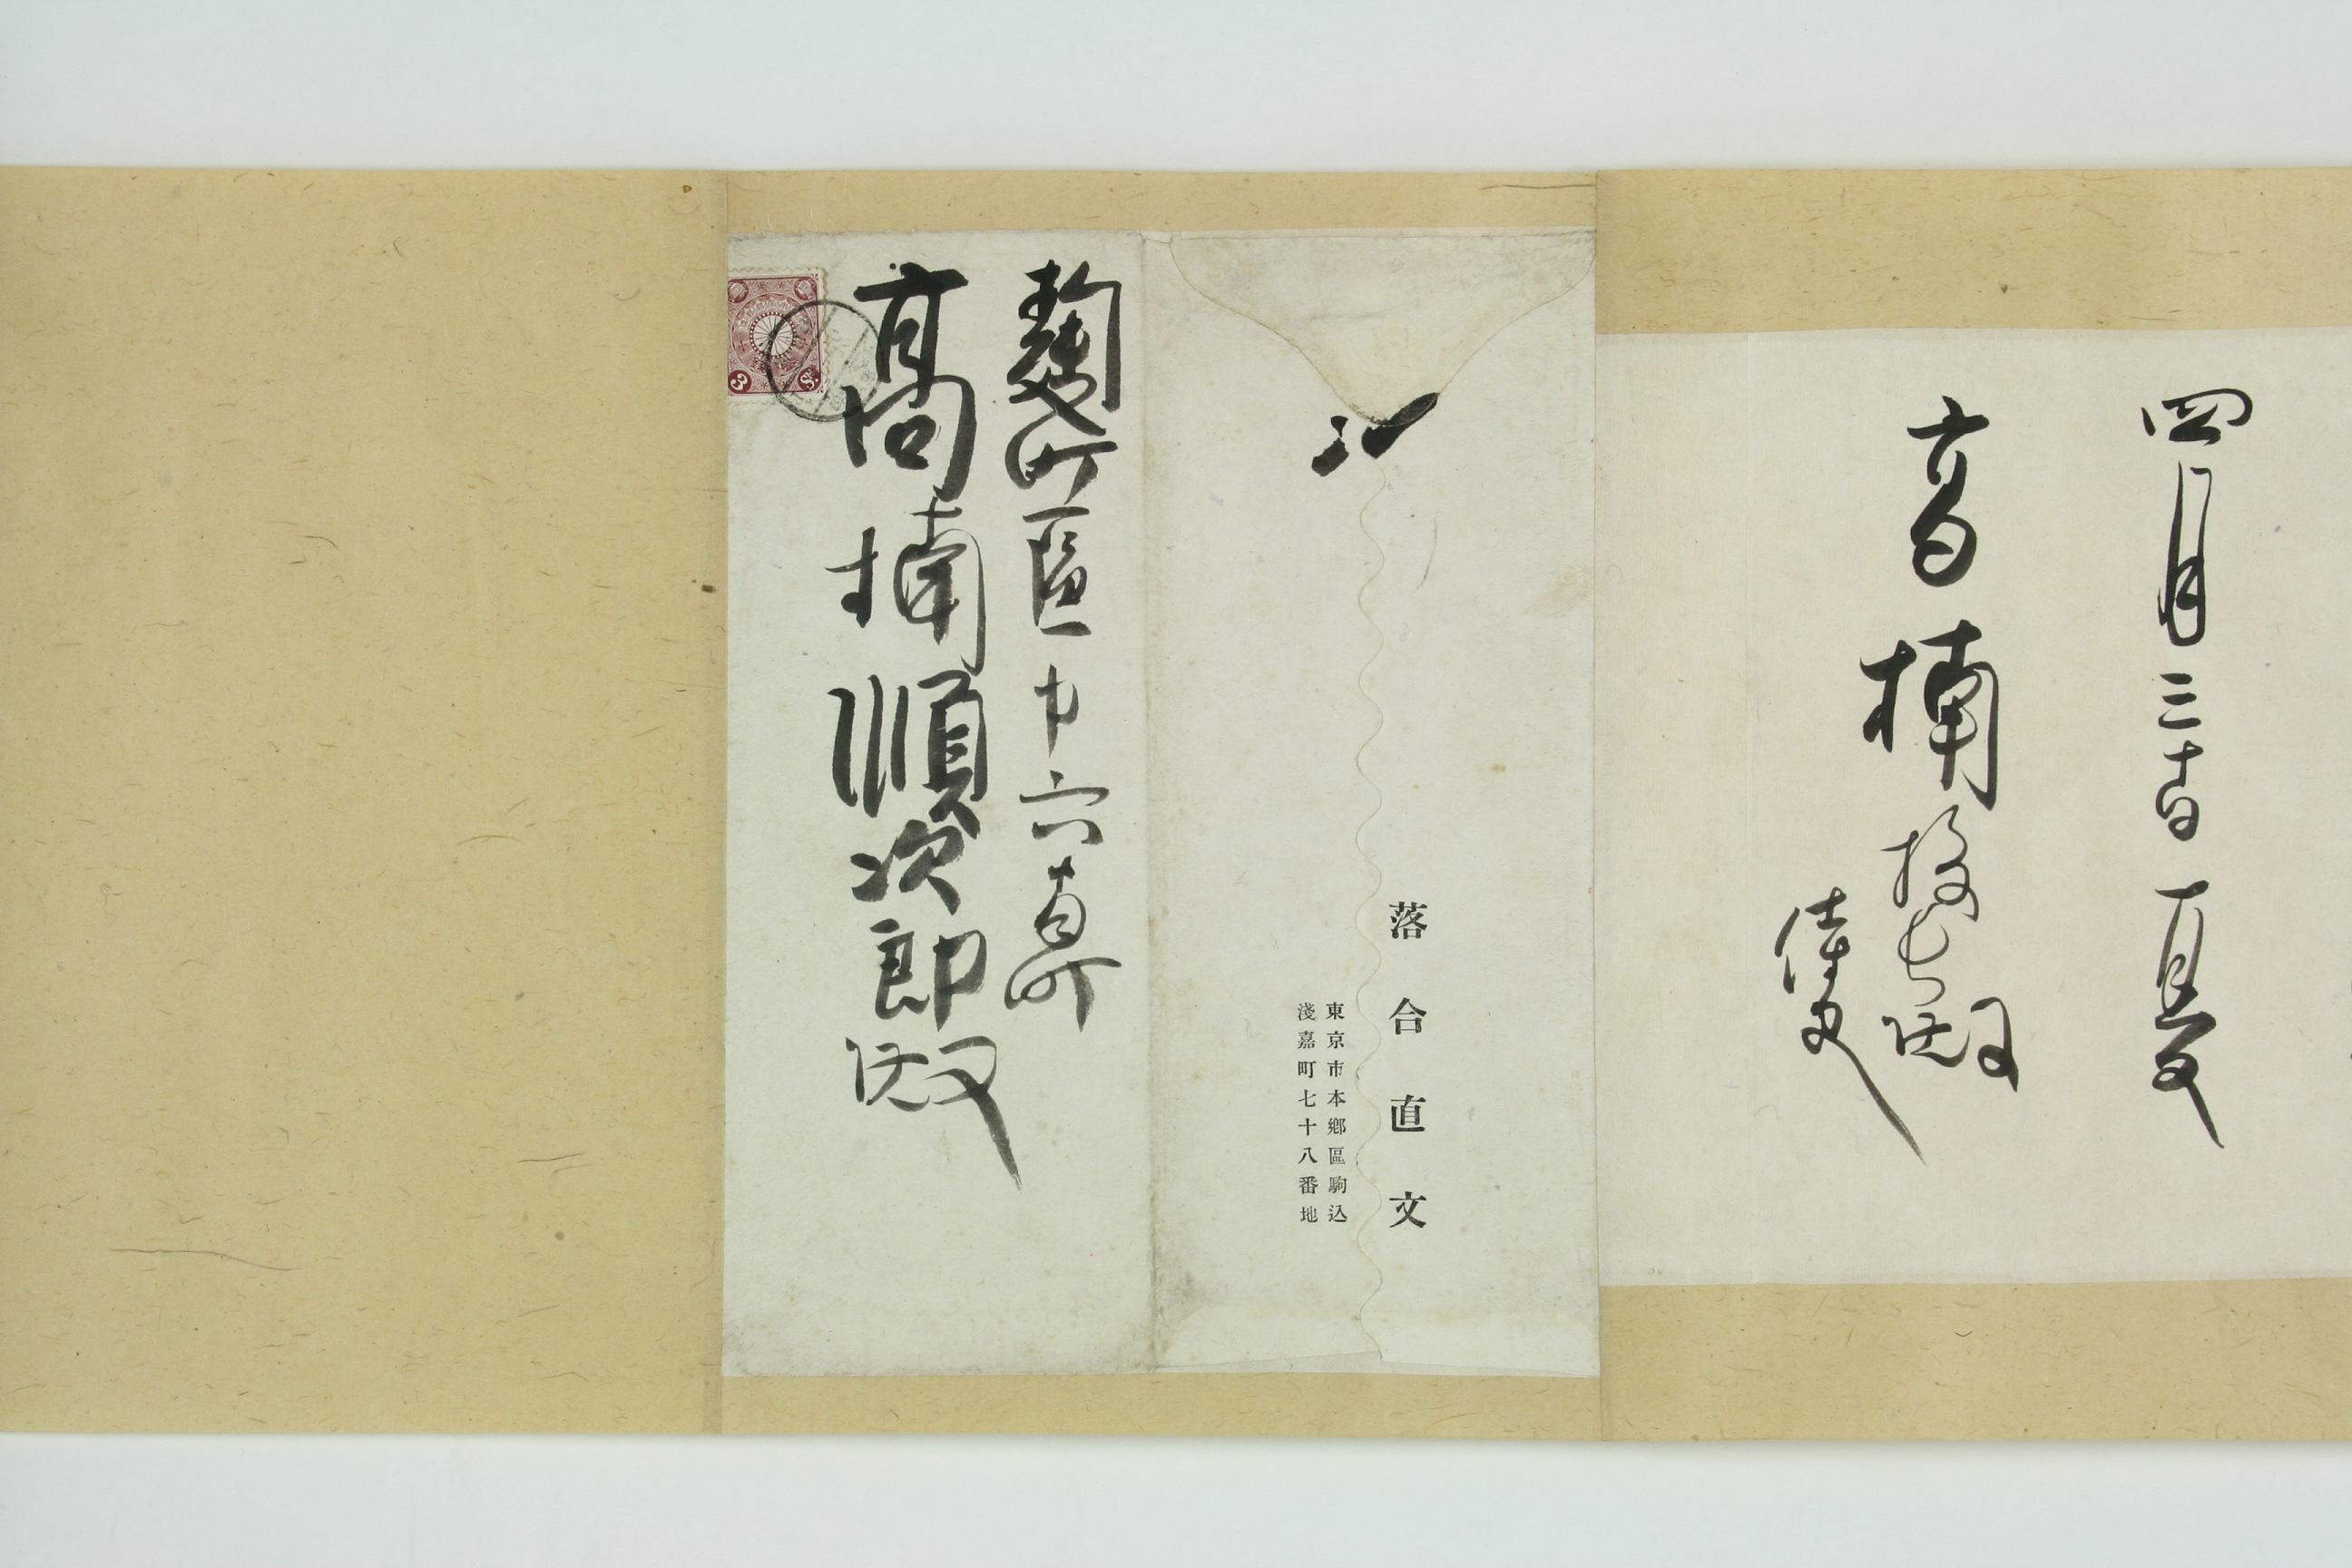 四月三十日 直文
高楠 殿
侍史
落合直文
東京市本鄕區駒込
淺嘉町七十八番地
麴町區中六番町
高楠順次郎殿
3 Sn.